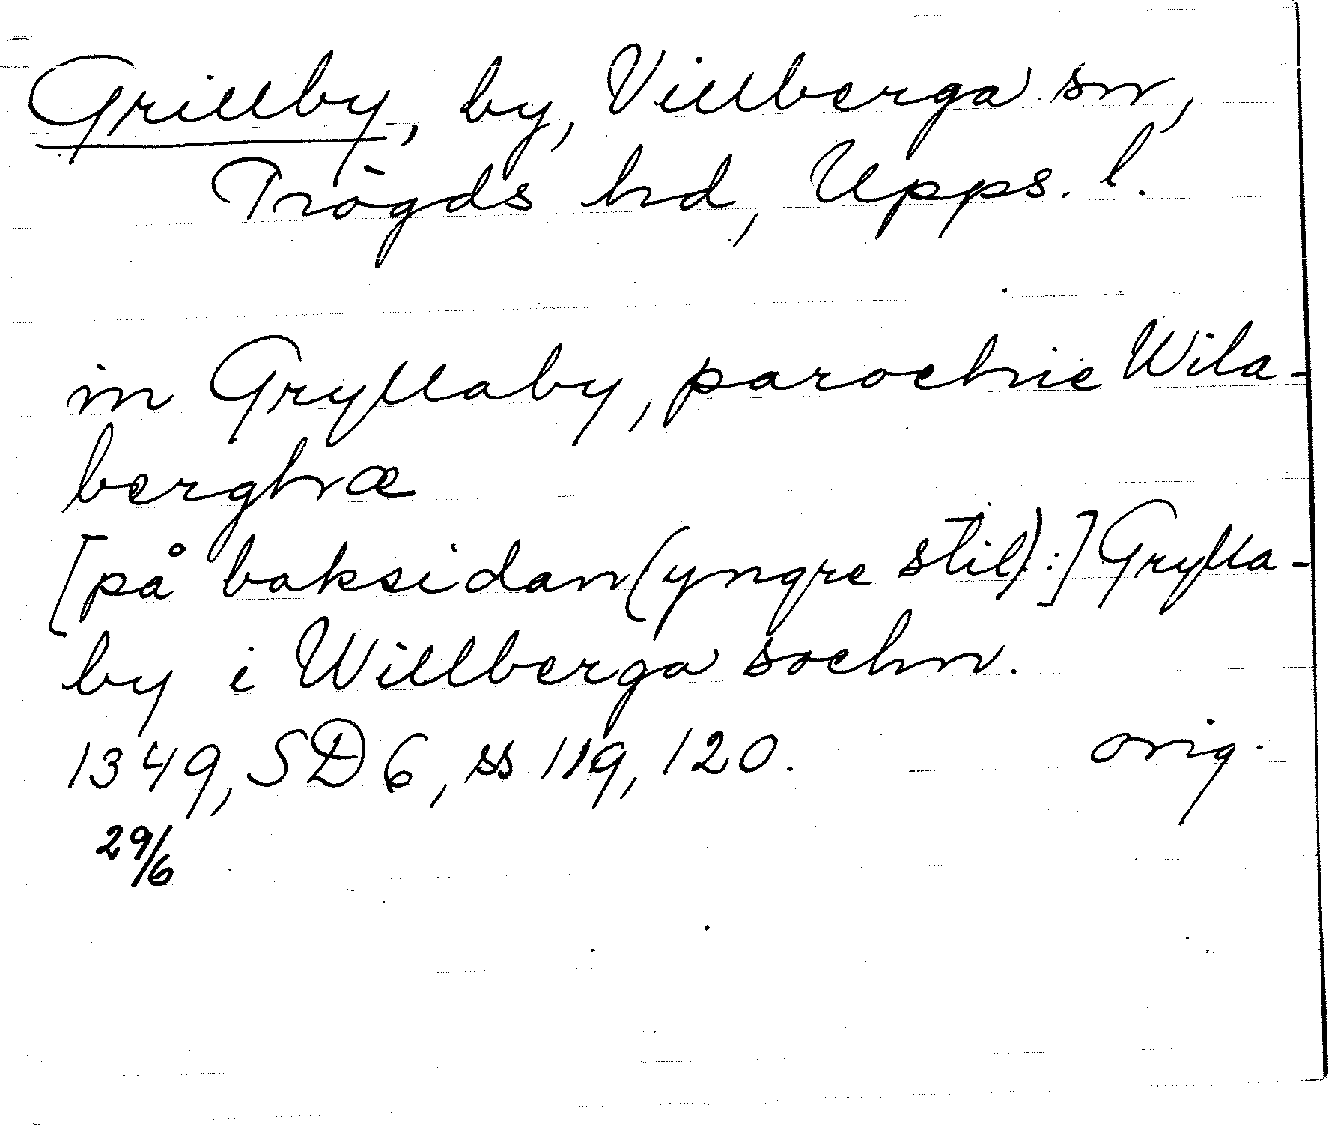 Grillby, by, Villberga sn,
Trögds hd, Upps. l.
in Gryllaby, parochie Wila-
berghæ
[på baksidan (yngre stil):] Grylla-
by i Willberga sochn.
1349, SD 6, ss 119, 120. orig.
29/6